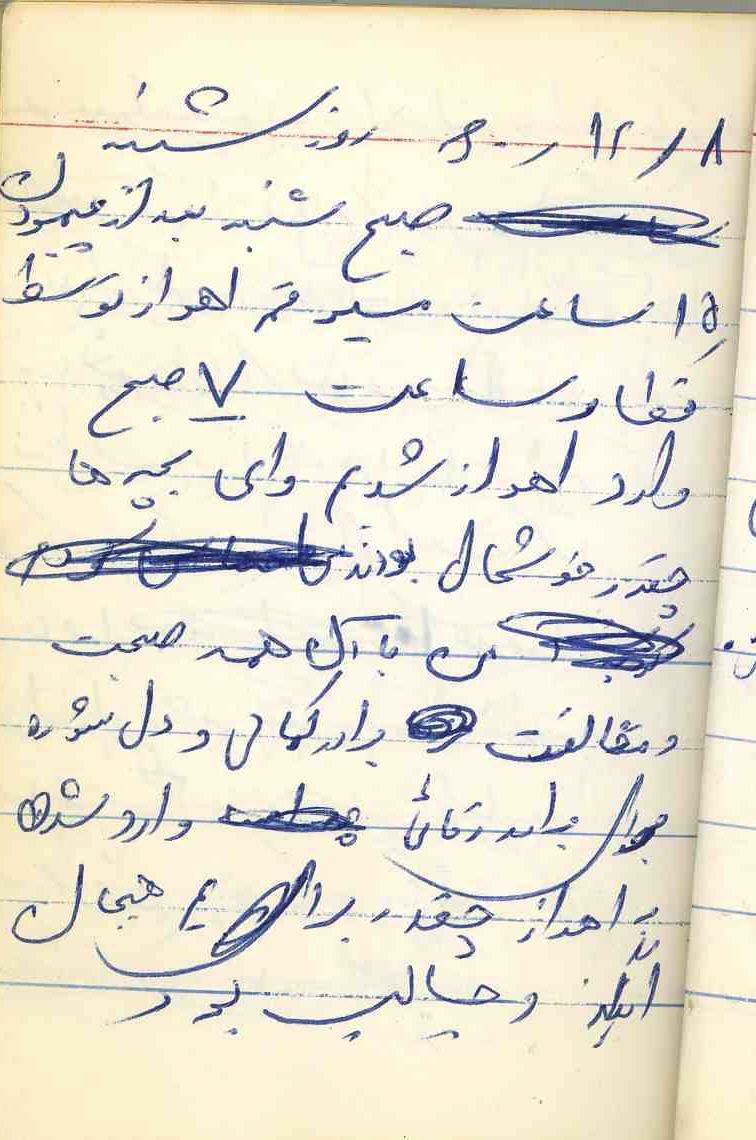 ۸ / ۱۲ / ۶۰ روز شنبه
صبح شنبه بعد از پیمودن
۱۵ ساعت مسیر قم اهواز توسط
قطار ساعت ۷ صبح
وارد اهواز شدم وای بچه ها
چقدر خوشحال بودند
من با آن همه صحبت
و مخالفت برادر کمالی و دل شوره
برادر رضائی وارد شدن
به اهواز چقدر برایم هیجان
انگیز و جالب بود